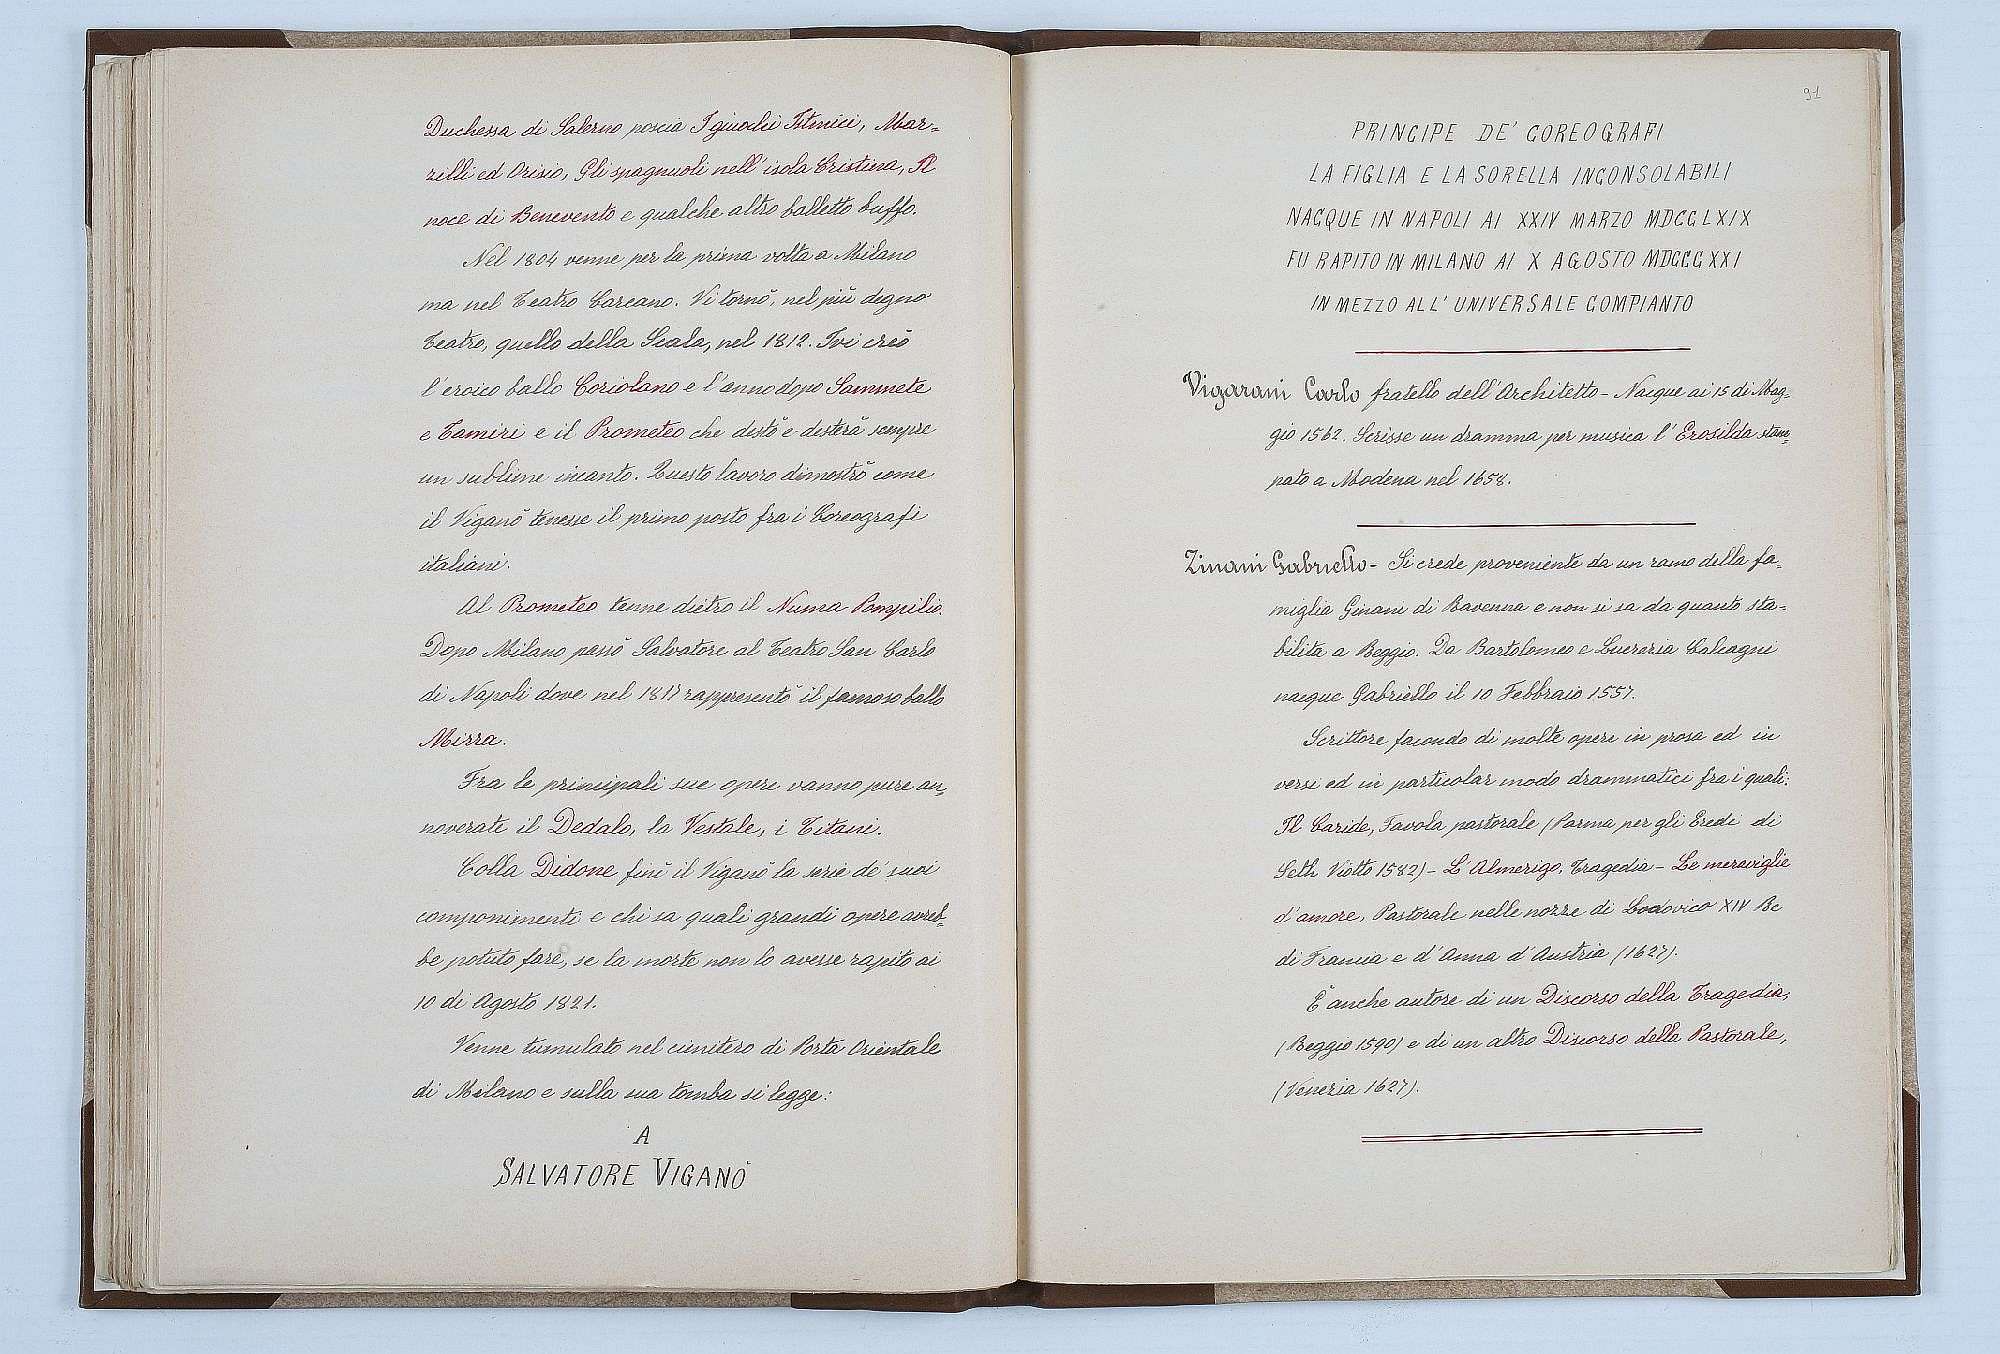 Duchessa di Salerno poscia I giuochi Istmici, Mar-
zilli ed Orisio, Gli spagnuoli nell'isola Cristina, Il
noce di Benevento e qualche altro balletto buffo.
Nel 1804 venne per la prima volta a Milano
ma nel Teatro Carcano. Vi tornò, nel più degno
Teatro, quello della Scala, nel 1812. Ivi creò
l'eroico ballo Coriolano e l'anno dopo Sammete
e Tamiri e il Prometeo che destò e desterà sempre
un sublime incanto. Questo lavoro dimostrò come
il Viganò tenesse il primo posto fra i Coreografi
italiani.
Al Prometeo tenne dietro il Numa Pompilio.
Dopo Milano passò Salvatore al Teatro San Carlo
di Napoli dove nel 1817 rappresentò il famoso ballo
Mirra.
Fra le principali sue opere vanno pure an-
noverate il Dedalo, la Vestale, i Titani.
Colla Didone finì il Viganò la serie de' suoi
componimenti e chi sa quali grandi opere avreb-
be potuto fare, se la morte non lo avesse rapito ai
10 di Agosto 1821.
Venne tumulato nel cimitero di Porta Orientale
di Milano e sulla sua tomba si legge:
A
SALVATORE VIGANÒ
91
PRINCIPE DE' COREOGRAFI
LA FIGLIA E LA SORELLA INCONSOLABILI
NACQUE IN NAPOLI AI XXIV MARZO MDCCLXIX
FU RAPITO IN MILANO AI X AGOSTO MDCCCXXI
IN MEZZO ALL' UNIVERSALE COMPIANTO
Vigarani Carlo fratello dell'Architetto - Nacque ai 15 di Mag-
gio 1562. Scrisse un dramma per musica l'Erosilda stam-
pato a Modena nel 1658.
Zinani Gabriello - Si crede proveniente da un ramo della fa-
miglia Ginani di Ravenna e non si sa da quanto sta-
bilita a Reggio. Da Bartolomeo e Lucrezia Calcagni
nacque Gabriello il 10 Febbraio 1557.
Scrittore facondo di molte opere in prosa ed in
versi ed in particolar modo drammatici fra i quali:
Il Caride, Favola pastorale (Parma per gli Eredi di
Seth Viotto 1582) - L'Almerigo, Tragedia - Le meraviglie
d'amore, Pastorale nelle nozze di Lodovico XIV Re
di Francia e d'Anna d'Austria (1627).
È anche autore di un Discorso della Tragedia,
(Reggio 1590) e di un altro Discorso della Pastorale,
(Venezia 1627).